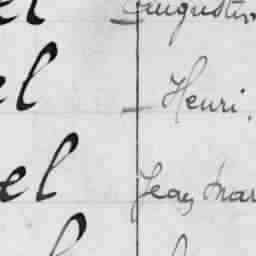 el Augustin
el Henri.
el Jean Mar